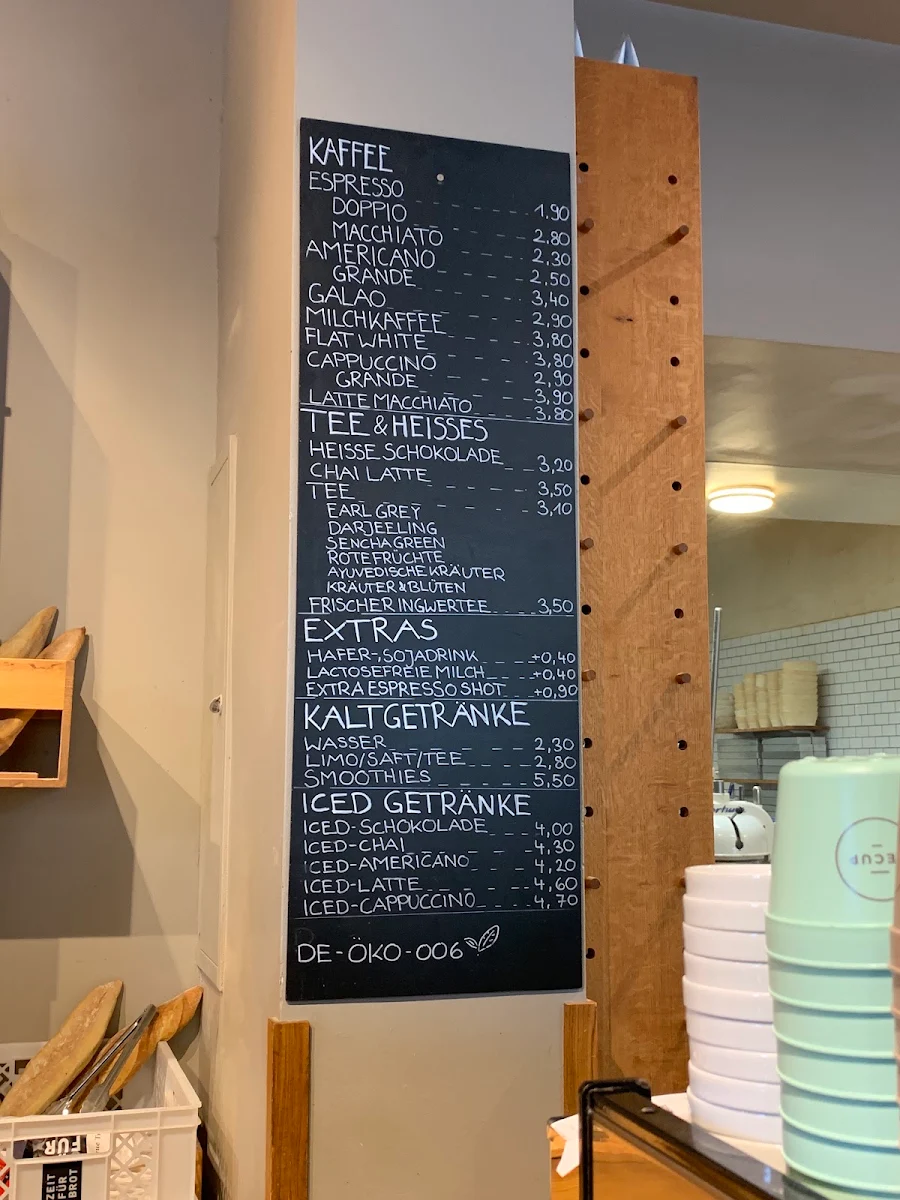 KAFFEE
ESPRESSO 1.90
DOPPIO 2.80
MACCHIATO 2,30
AMERICANO 2,50
GRANDE 3,40
GALAO 2,90
MILCHKAFFEE 3,80
FLAT WHITE 3,80
CAPPUCCINO 2,90
GRANDE 3,90
LATTE MACCHIATO 3,80
TEE & HEISSES
HEISSE SCHOKOLADE 3,20
CHAI LATTE 3,50
TEE 3,10
EARL GREY
DARJEELING
SENCHA GREEN
ROTE FRÜCHTE
AYUVEDISCHE KRÄUTER
KRÄUTER & BLÜTEN
FRISCHER INGWERTEE 3,50
EXTRAS
HAFER-, SOJADRINK +0,40
LACTOSEFREIE MILCH +0,40
EXTRA ESPRESSO SHOT +0,90
KALTGETRÄNKE
WASSER 2,30
LIMO/SAFT/TEE 2,80
SMOOTHIES 5,50
ICED GETRÄNKE
ICED-SCHOKOLADE 4,00
ICED-CHAI 4,30
ICED-AMERICANO 4,20
ICED-LATTE 4,60
ICED-CAPPUCCINO 4,70
DE-ÖKO-006
ECUP
FÜR
ZEIT
FÜR
BROT